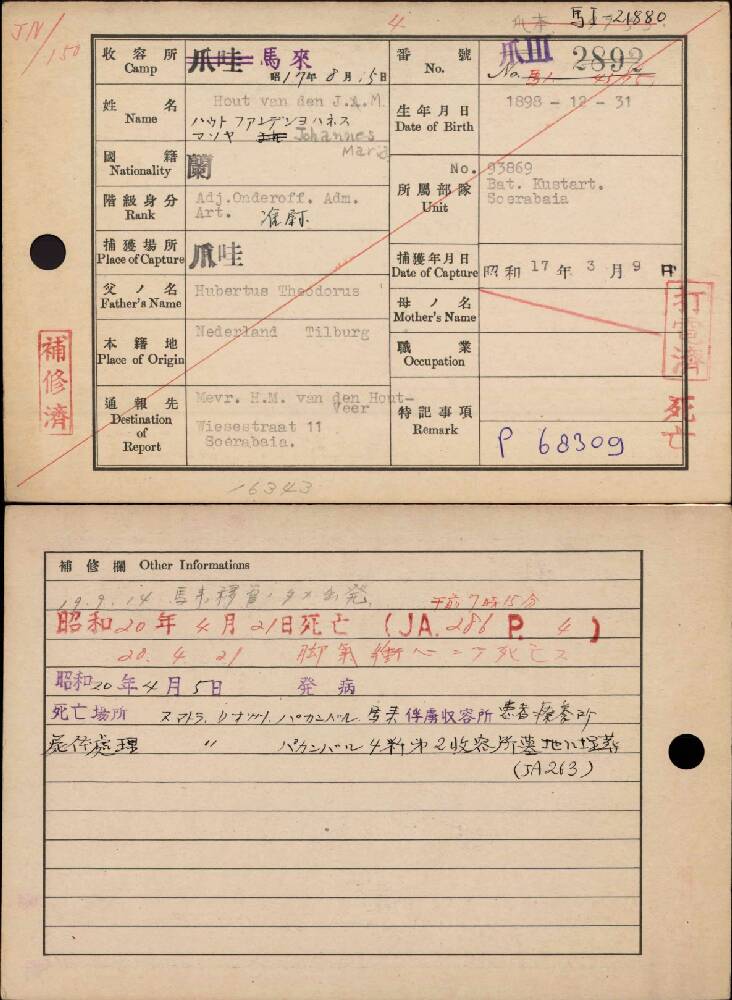 JN/150
4
馬I-21880
収容所 Camp
爪哇 馬來
昭17年8月15日
番號 No.
爪III 2892
姓名 Name
Hout van den J.A.M.
ハウト ファンデンヨハネス
マリヤ Johannes
Maria
生年月日 Date of Birth
1898 - 12 - 31
國籍 Nationality
蘭
階級身分 Rank
Adj.Onderoff. Adm.
Art. 准尉
所屬部隊 Unit
No. 93869
Bat. Kustart.
Soerabaia
捕獲場所 Place of Capture
爪哇
捕獲年月日 Date of Capture
昭和 17 年 3 月 9 日
父ノ名 Father's Name
Hubertus Theodorus
母ノ名 Mother's Name
本籍地 Place of Origin
Nederland Tilburg
職業 Occupation
通報先 Destination of Report
Mevr. H.M. van den Hout-
Veer
Wiesestraat 11
Soerabaia.
特記事項 Remark
P 68309
補修濟
打電濟
死亡
16343
補修欄 Other Informations
19.9.14 馬来移管ノタメ出発
午前7時15分
昭和20年4月21日死亡 (JA.286 P. 4)
20.4.21 脚氣衝心ニテ死亡ス
昭和20年4月5日 発病
死亡場所 スマトラ、 パカンバル 馬来俘虜収容所患者療養所
屍体處理 〃 パカンバル 第2収容所墓地ニ埋葬
(JA263)